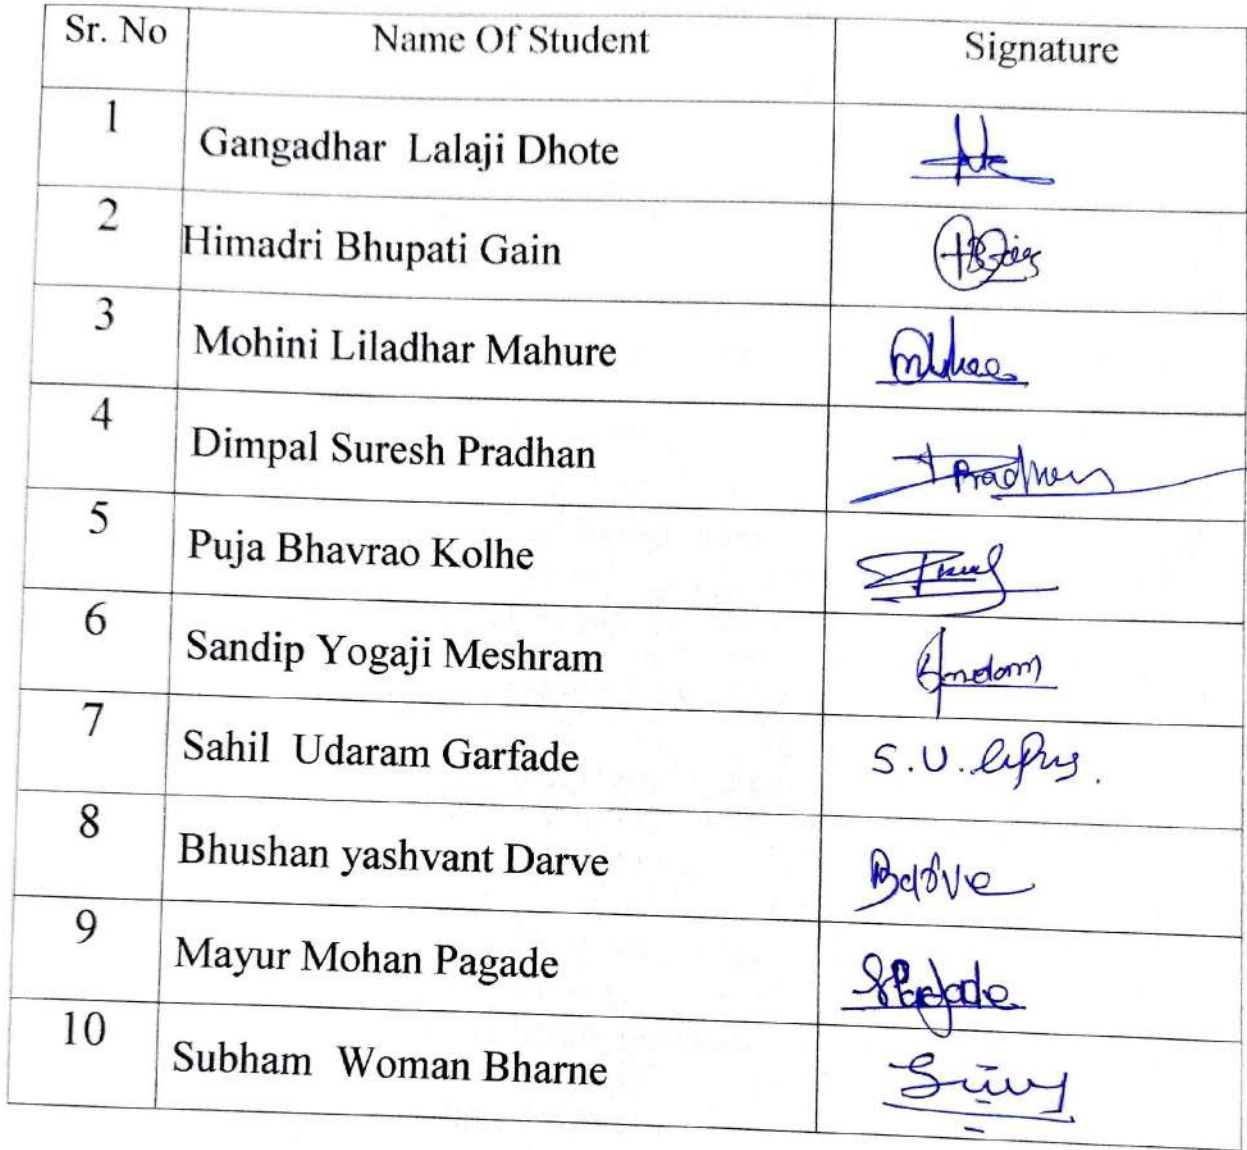 Sr. No Name Of Student Signature
1 Gangadhar Lalaji Dhote
2 Himadri Bhupati Gain
3 Mohini Liladhar Mahure
4 Dimpal Suresh Pradhan Pradhan
5 Puja Bhavrao Kolhe
6 Sandip Yogaji Meshram
7 Sahil Udaram Garfade S.U.
8 Bhushan yashvant Darve
9 Mayur Mohan Pagade
10 Subham Woman Bharne